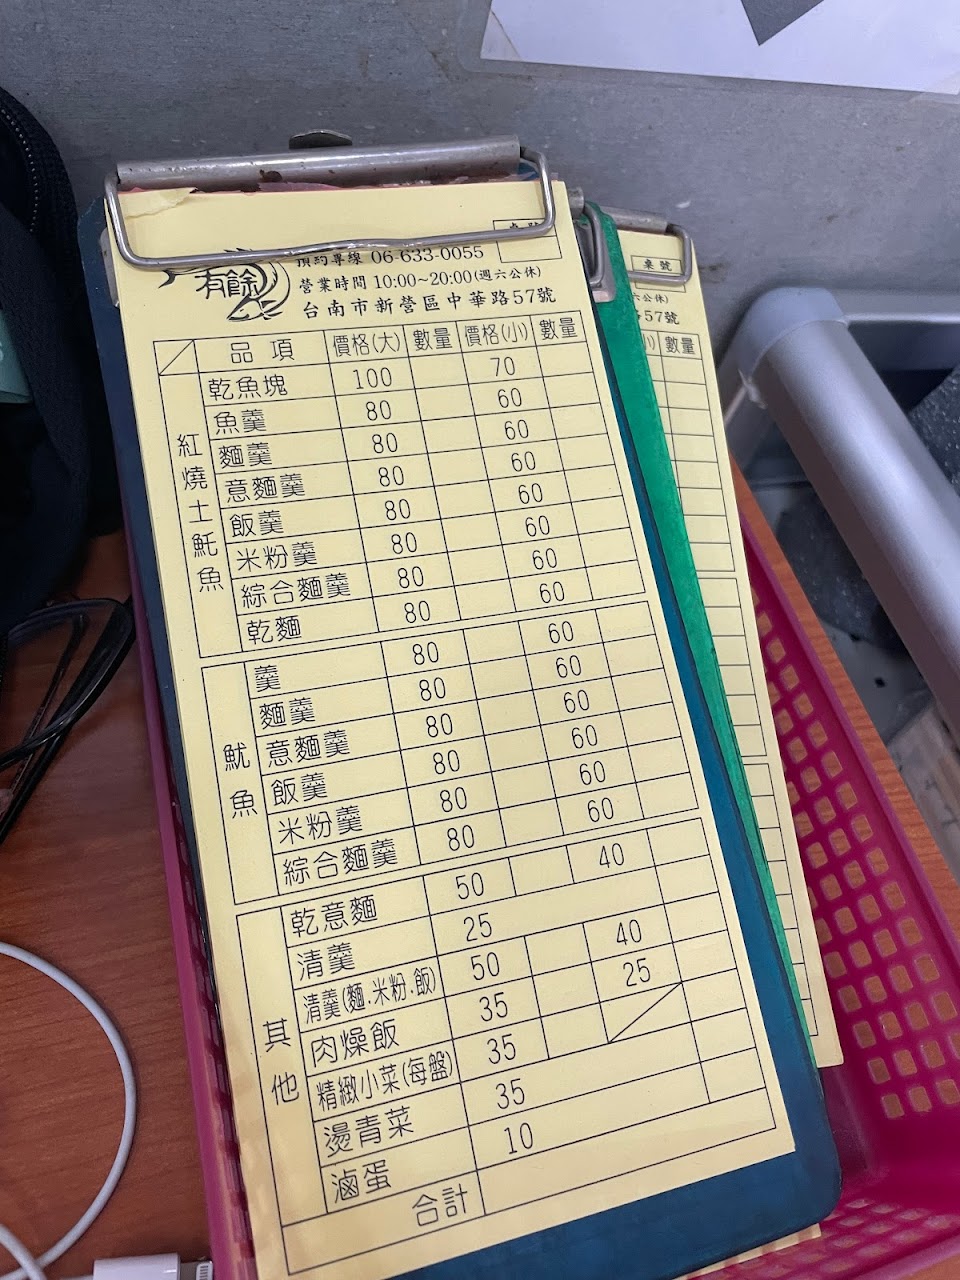 桌號
有餘
預約專線 06-633-0055
營業時間 10:00~20:00(週六公休)
台南市新營區中華路57號
品項 價格(大) 數量 價格(小) 數量
紅燒土魠魚
乾魚塊 100 70
魚羹 80 60
麵羹 80 60
意麵羹 80 60
飯羹 80 60
米粉羹 80 60
綜合麵羹 80 60
乾麵 80 60
魷魚
羹 80 60
麵羹 80 60
意麵羹 80 60
飯羹 80 60
米粉羹 80 60
綜合麵羹 80 60
其他
乾意麵 50 40
清羹 25
清羹(麵.米粉.飯) 50 40
肉燥飯 35 25
精緻小菜(每盤) 35
燙青菜 35
滷蛋 10
合計
桌號
六公休)
57號
小) 數量